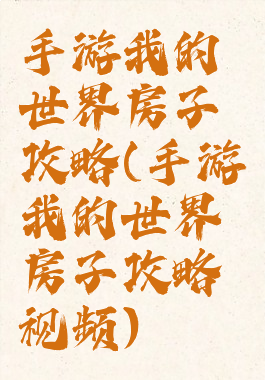 手游我的
世界房子
攻略(手游
我的世界
房子攻略
视频)